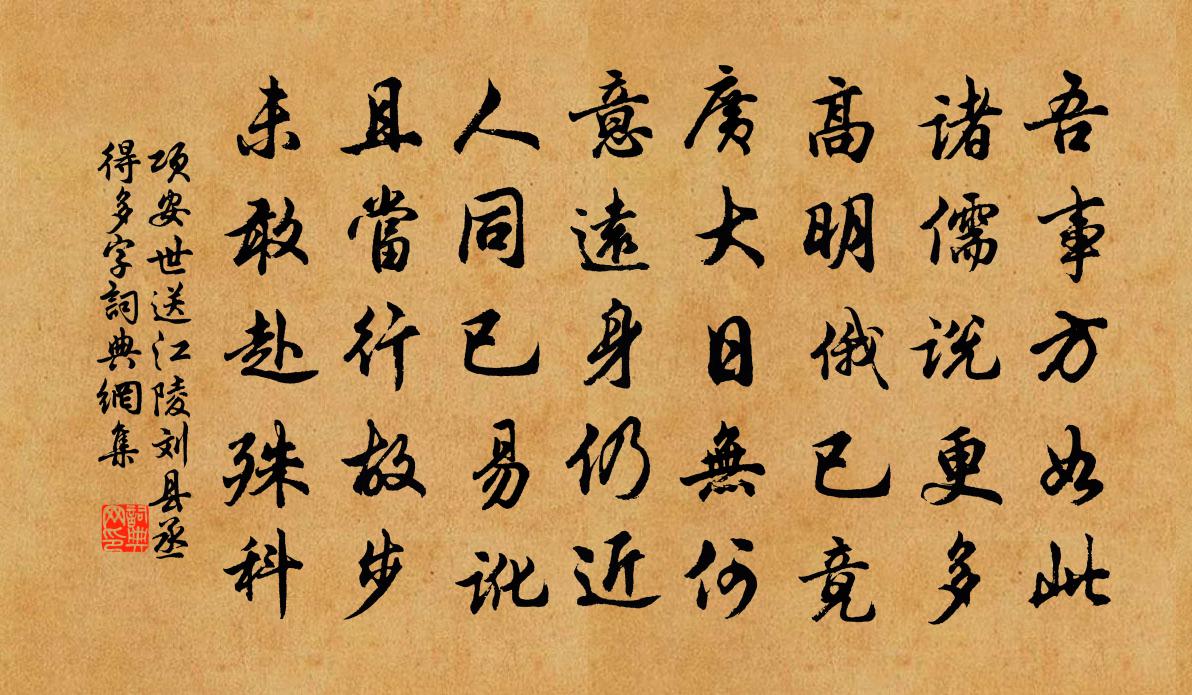 吾事方如此
諸儒說更多
高明俄已竟
廣大日無何
意遠身仍近
人同已易訛
且當行故步
未敢赴殊科
项安世送江陵刘县丞
得多字詞典網集
詞典网印